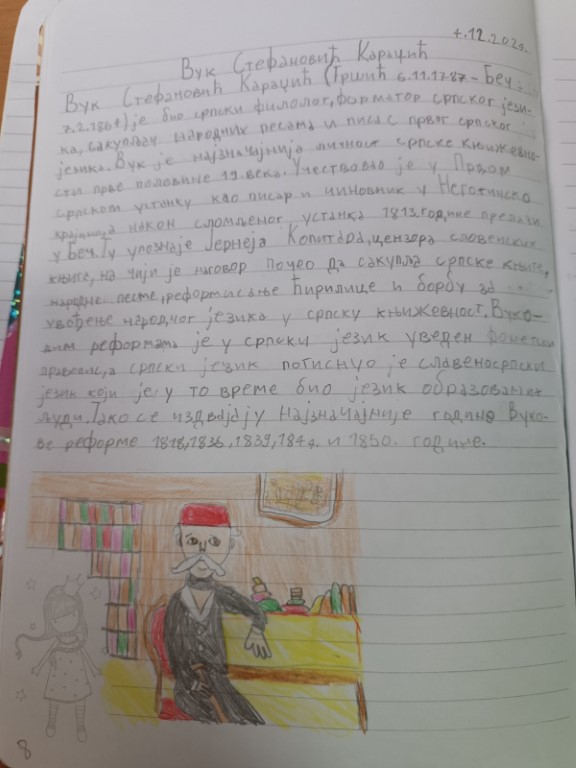 4.12.202
Вук Стефановић Караџић
Вук Стефановић Караџић (Тршић 6.11.1787 - Беч,
7.2.1864) је био српски филолог, форматор српског јези-
ка, сакупљач народних песама и писац првог српског
језика. Вук је најзначајнија личност српске књижевно-
сти прве половине 19. века. Учествовао је у Првом
српском устанку као писар и чиновник у Неготинској
крајини а након сломљеног устанка 1813. године прелази
у Беч. Ту упознаје Јернеја Копитара, цензора словенских
књига, на чији је наговор почео да сакупља српске књиге,
народне песме, реформисање ћирилице и борбу за
увођење народног језика у српску књижевност. Вуко-
вим реформама је у српски језик уведен фонетски
правопис, а српски језик потиснуо је славеносрпски
језик који је у то време био језик образованих
људи. Тако се издвајају најзначајније године Вуко-
ве реформе 1818, 1836, 1839, 1847. и 1850. године.
8